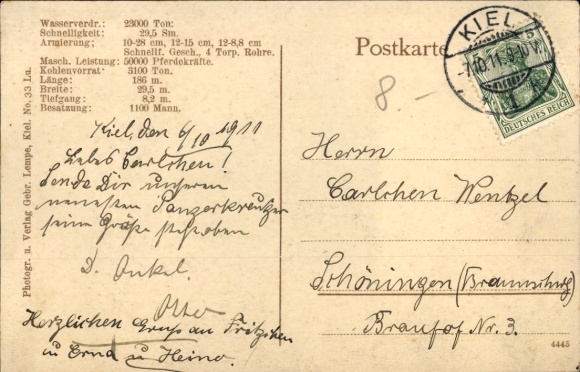 Wasserverdr.: 23000 Ton:
Schnelligkeit: 29,5 Sm.
Armierung: 10-28 cm, 12-15 cm, 12-8,8 cm
Schnellf. Gesch., 4 Torp. Rohre.
Masch. Leistung: 50000 Pferdekräfte.
Kohlenvorrat: 3100 Ton.
Länge: 186 m.
Breite: 29,5 m.
Tiefgang: 8,2 m.
Besatzung: 1100 Mann.
Photogr. u. Verlag Gebr. Lempe, Kiel. No. 33 La.
Kiel, den 6/10 1911
Liebes Carlchen!
Sende Dir unseren
neuesten Panzerkreutzer
seine Größe steht oben
D. Onkel
Otto
Herzlichen Gruss an Fritzchen
u Erna u Heino.
Postkarte
8.-
KIEL
7.10.11.9-10V.
1
5
DEUTSCHES REICH
Herrn
Carlchen Wentzel
Schöningen (Braunschwg)
Nr. 3.
4445